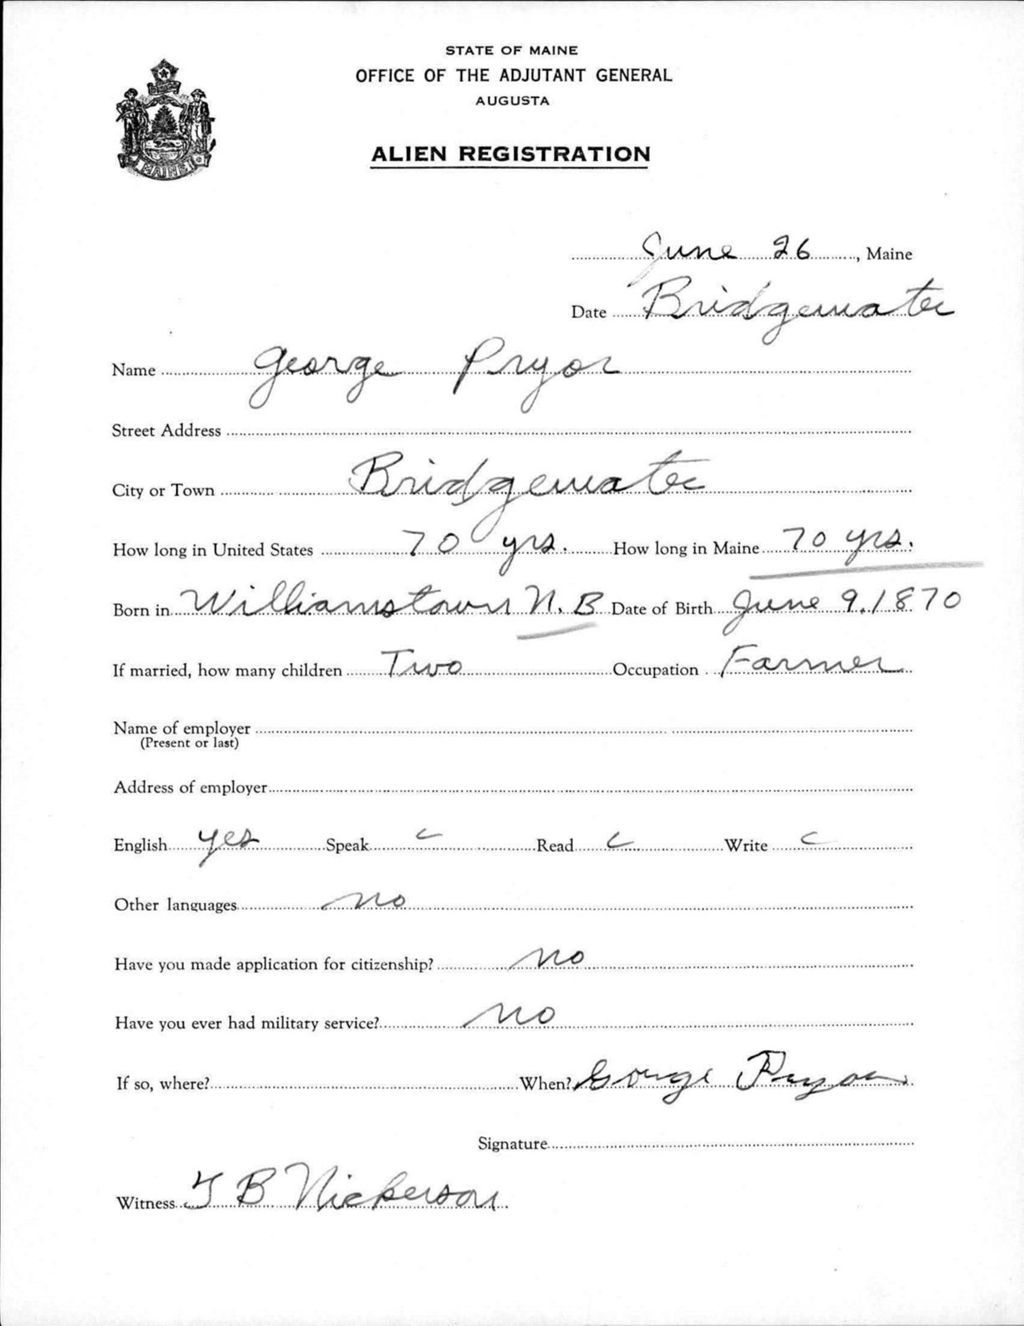 STATE OF MAINE
OFFICE OF THE ADJUTANT GENERAL
AUGUSTA
ALIEN REGISTRATION
MAINE
June 26, Maine
Date Bridgewater
Name George Pryor
Street Address
City or Town Bridgewater
How long in United States 70 yrs. How long in Maine 70 yrs.
Born in Williamstown N. B Date of Birth June 9, 1870
If married, how many children Two Occupation Farmer
Name of employer
(Present or last)
Address of employer
English yes Speak Read Write
Other languages no
Have you made application for citizenship? no
Have you ever had military service? no
If so, where? When? George Pryor
Signature
Witness T B Nickerson